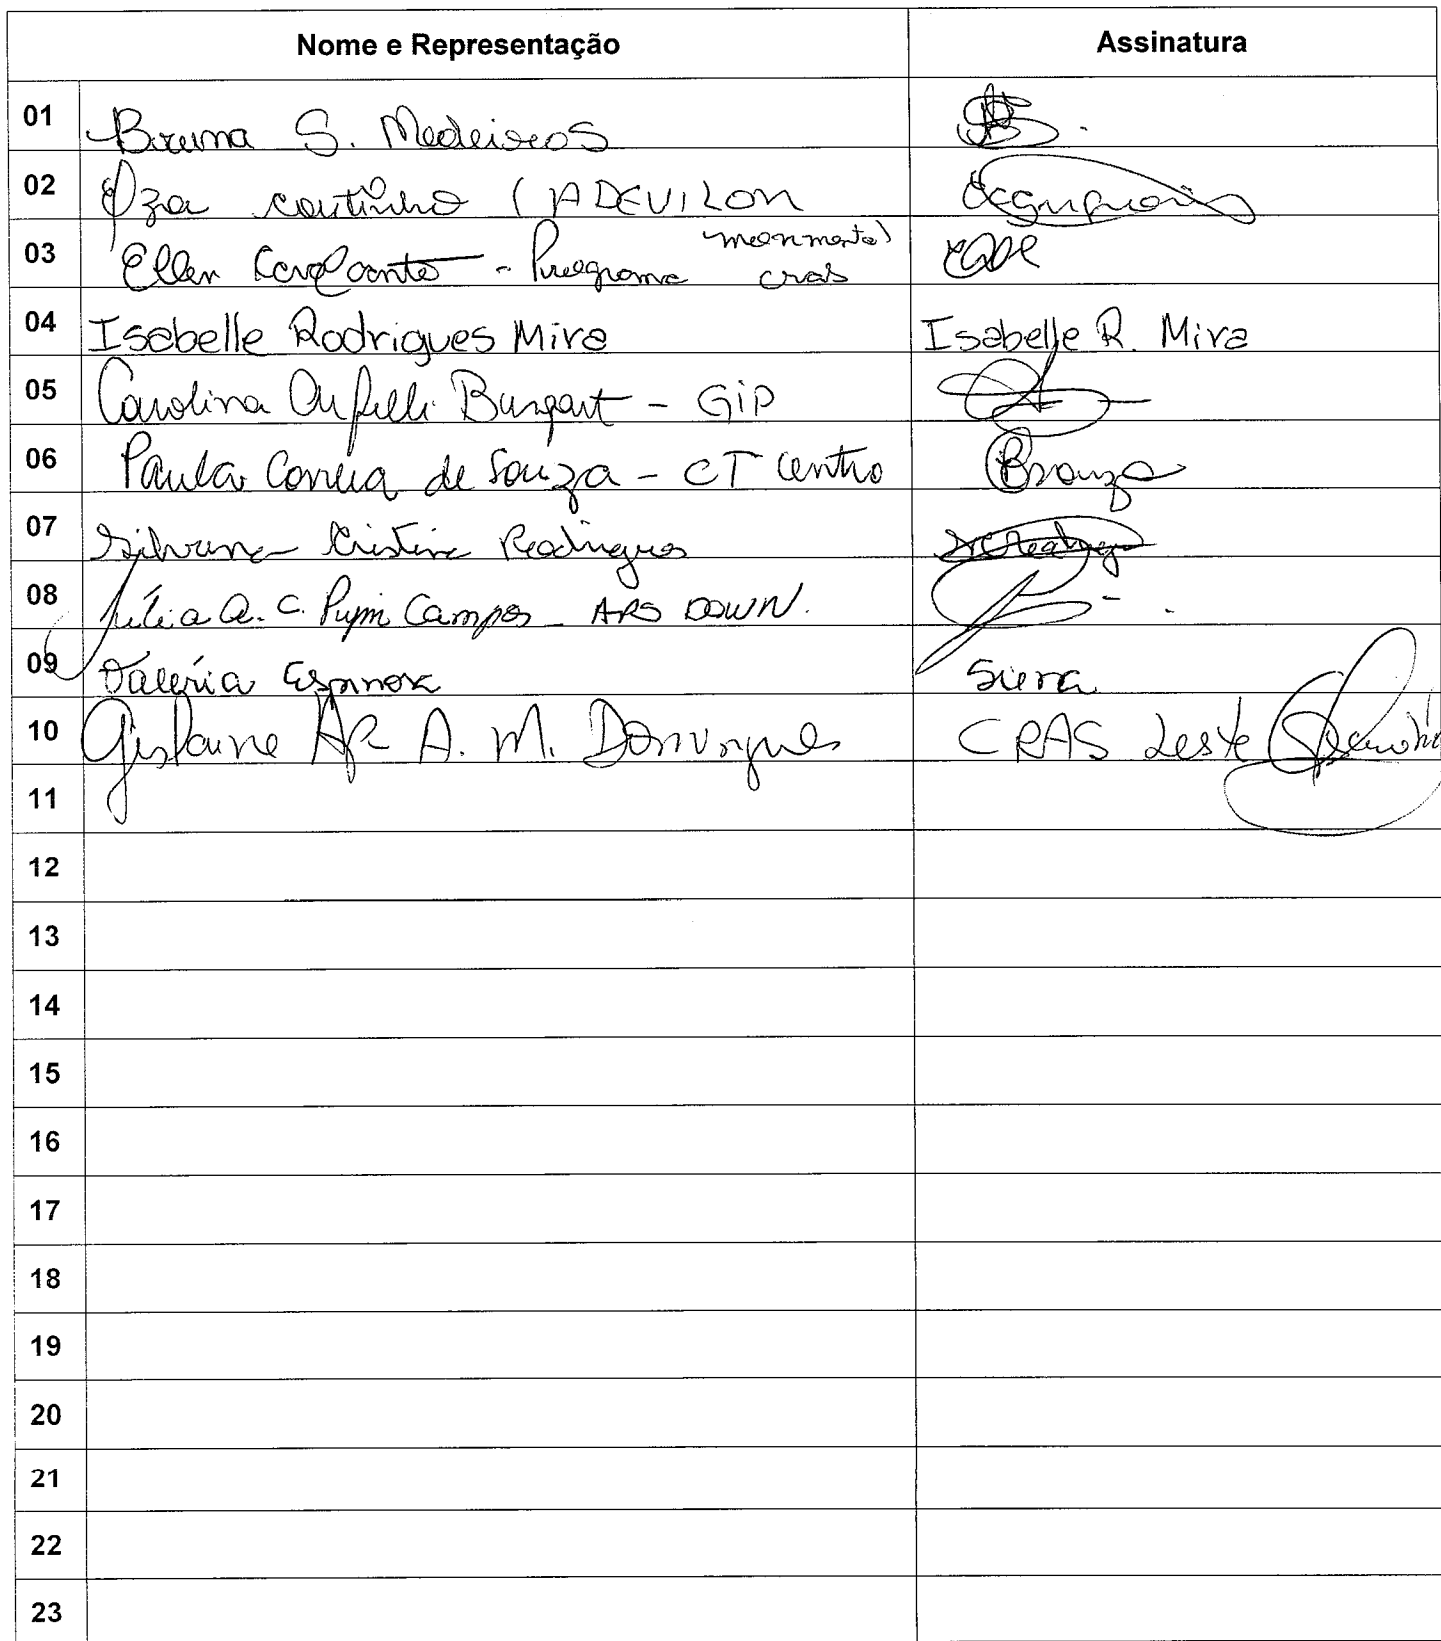 Nome e Representação Assinatura
01 Bruna S. Medeiros
02 Coutinho (ADEVILON
03 Ellen Cavalcante - Programa cras
04 Isabelle Rodrigues Mira Isabelle R. Mira
05 Carolina Burgart - GiP
06 Paula Correia de Souza - CT Centro
07 Silvana Cristina Rodrigues
08 Júlia A. C. Campos - ARS DOWN.
09 Valéria Espinosa
10 Gislaine AP. A. M. Domingues CRAS Leste
11
12
13
14
15
16
17
18
19
20
21
22
23